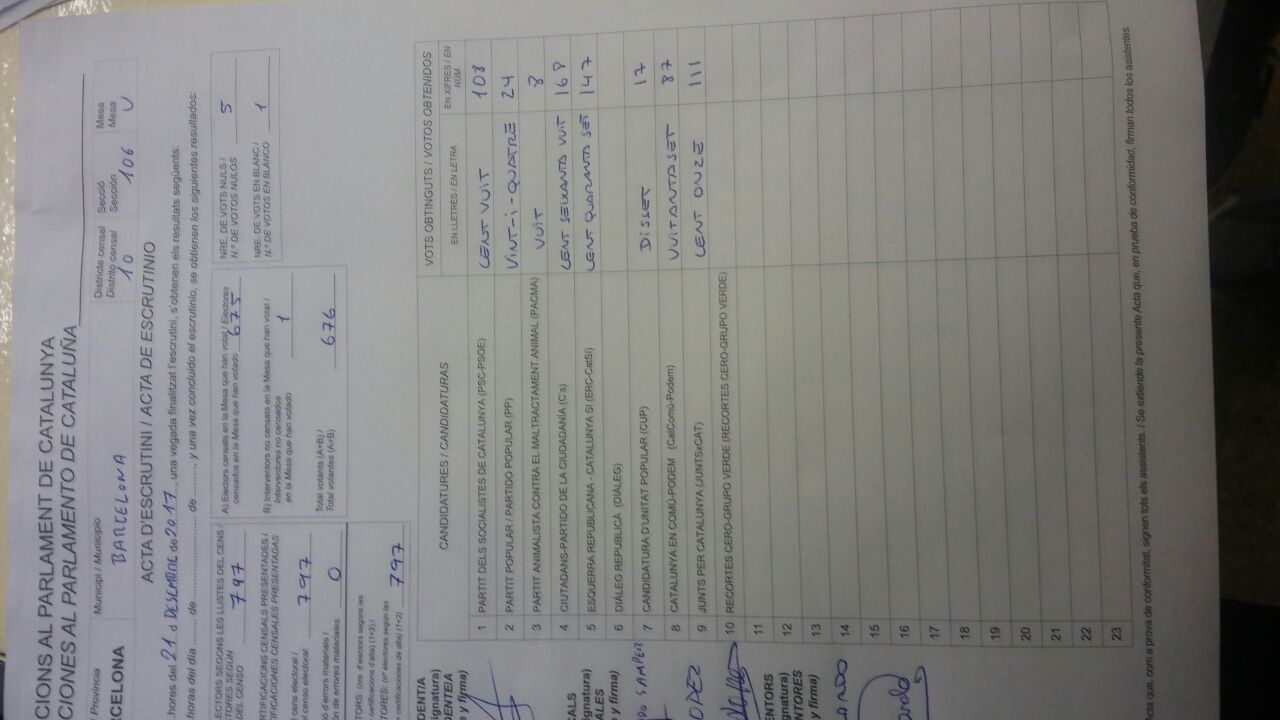 CIONS AL PARLAMENT DE CATALUNYA
CIONES AL PARLAMENTO DE CATALUÑA
Província Municipi / Municipio Districte censal Secció Mesa
Distrito censal Sección Mesa
RCELONA BARCELONA 10 106 U
ACTA D'ESCRUTINI / ACTA DE ESCRUTINIO
hores del 21 d DESEMBRE de 2017, una vegada finalitzat l'escrutini, s'obtenen els resultats següents:
horas del día de de y una vez concluido el escrutinio, se obtienen los siguientes resultados:
LECTORS SEGONS LES LLISTES DEL CENS /
TORES SEGÚN
DEL CENSO 797
RTIFICACIONS CENSALS PRESENTADES /
TIFICACIONES CENSALES PRESENTADAS
cens electoral /
l censo electoral: 797
d'errors materials /
ón de errores materiales: 0
TORS: (nre. d'electors segons les
certificacions d'alta) (1+2) /
TORES: (nº electores según las
certificaciones de alta) (1+2) 797
A) Electors censats en la Mesa que han votat / Electores
censados en la Mesa que han votado 675
B) Interventors no censats en la Mesa que han votat /
Interventores no censados
en la Mesa que han votado 1
Total votants (A+B) /
Total votantes (A+B) 676
NRE. DE VOTS NULS /
N.º DE VOTOS NULOS 5
NRE. DE VOTS EN BLANC /
N.º DE VOTOS EN BLANCO 1
CANDIDATURES / CANDIDATURAS VOTS OBTINGUTS / VOTOS OBTENIDOS
EN LLETRES / EN LETRA EN XIFRES / EN NÚM.
1 PARTIT DELS SOCIALISTES DE CATALUNYA (PSC-PSOE) CENT VUIT 108
2 PARTIT POPULAR / PARTIDO POPULAR (PP) VINT-I-QUATRE 24
3 PARTIT ANIMALISTA CONTRA EL MALTRACTAMENT ANIMAL (PACMA) VUIT 8
4 CIUTADANS-PARTIDO DE LA CIUDADANÍA (C's) CENT SEIXANTA VUIT 168
5 ESQUERRA REPUBLICANA - CATALUNYA SÍ (ERC-CatSí) CENT QUARANTA SET 147
6 DIÀLEG REPUBLICÀ (DIÀLEG)
7 CANDIDATURA D'UNITAT POPULAR (CUP) DISSET 17
8 CATALUNYA EN COMÚ-PODEM (CatComú-Podem) VUITANTASET 87
9 JUNTS PER CATALUNYA (JUNTSxCAT) CENT ONZE 111
10 RECORTES CERO-GRUPO VERDE (RECORTES CERO-GRUPO VERDE)
11
12
13
14
15
16
17
18
19
20
21
22
23
DENTIA
ignatura)
DENTE/A
e y firma)
CALS
ignatura)
ALES
e y firma)
SAMPER
ENTORS
ignatura)
NTORES
e y firma)
cta que, com a prova de conformitat, signen tots els assistents. / Se extiende la presente Acta que, en prueba de conformidad, firman todos los asistentes.